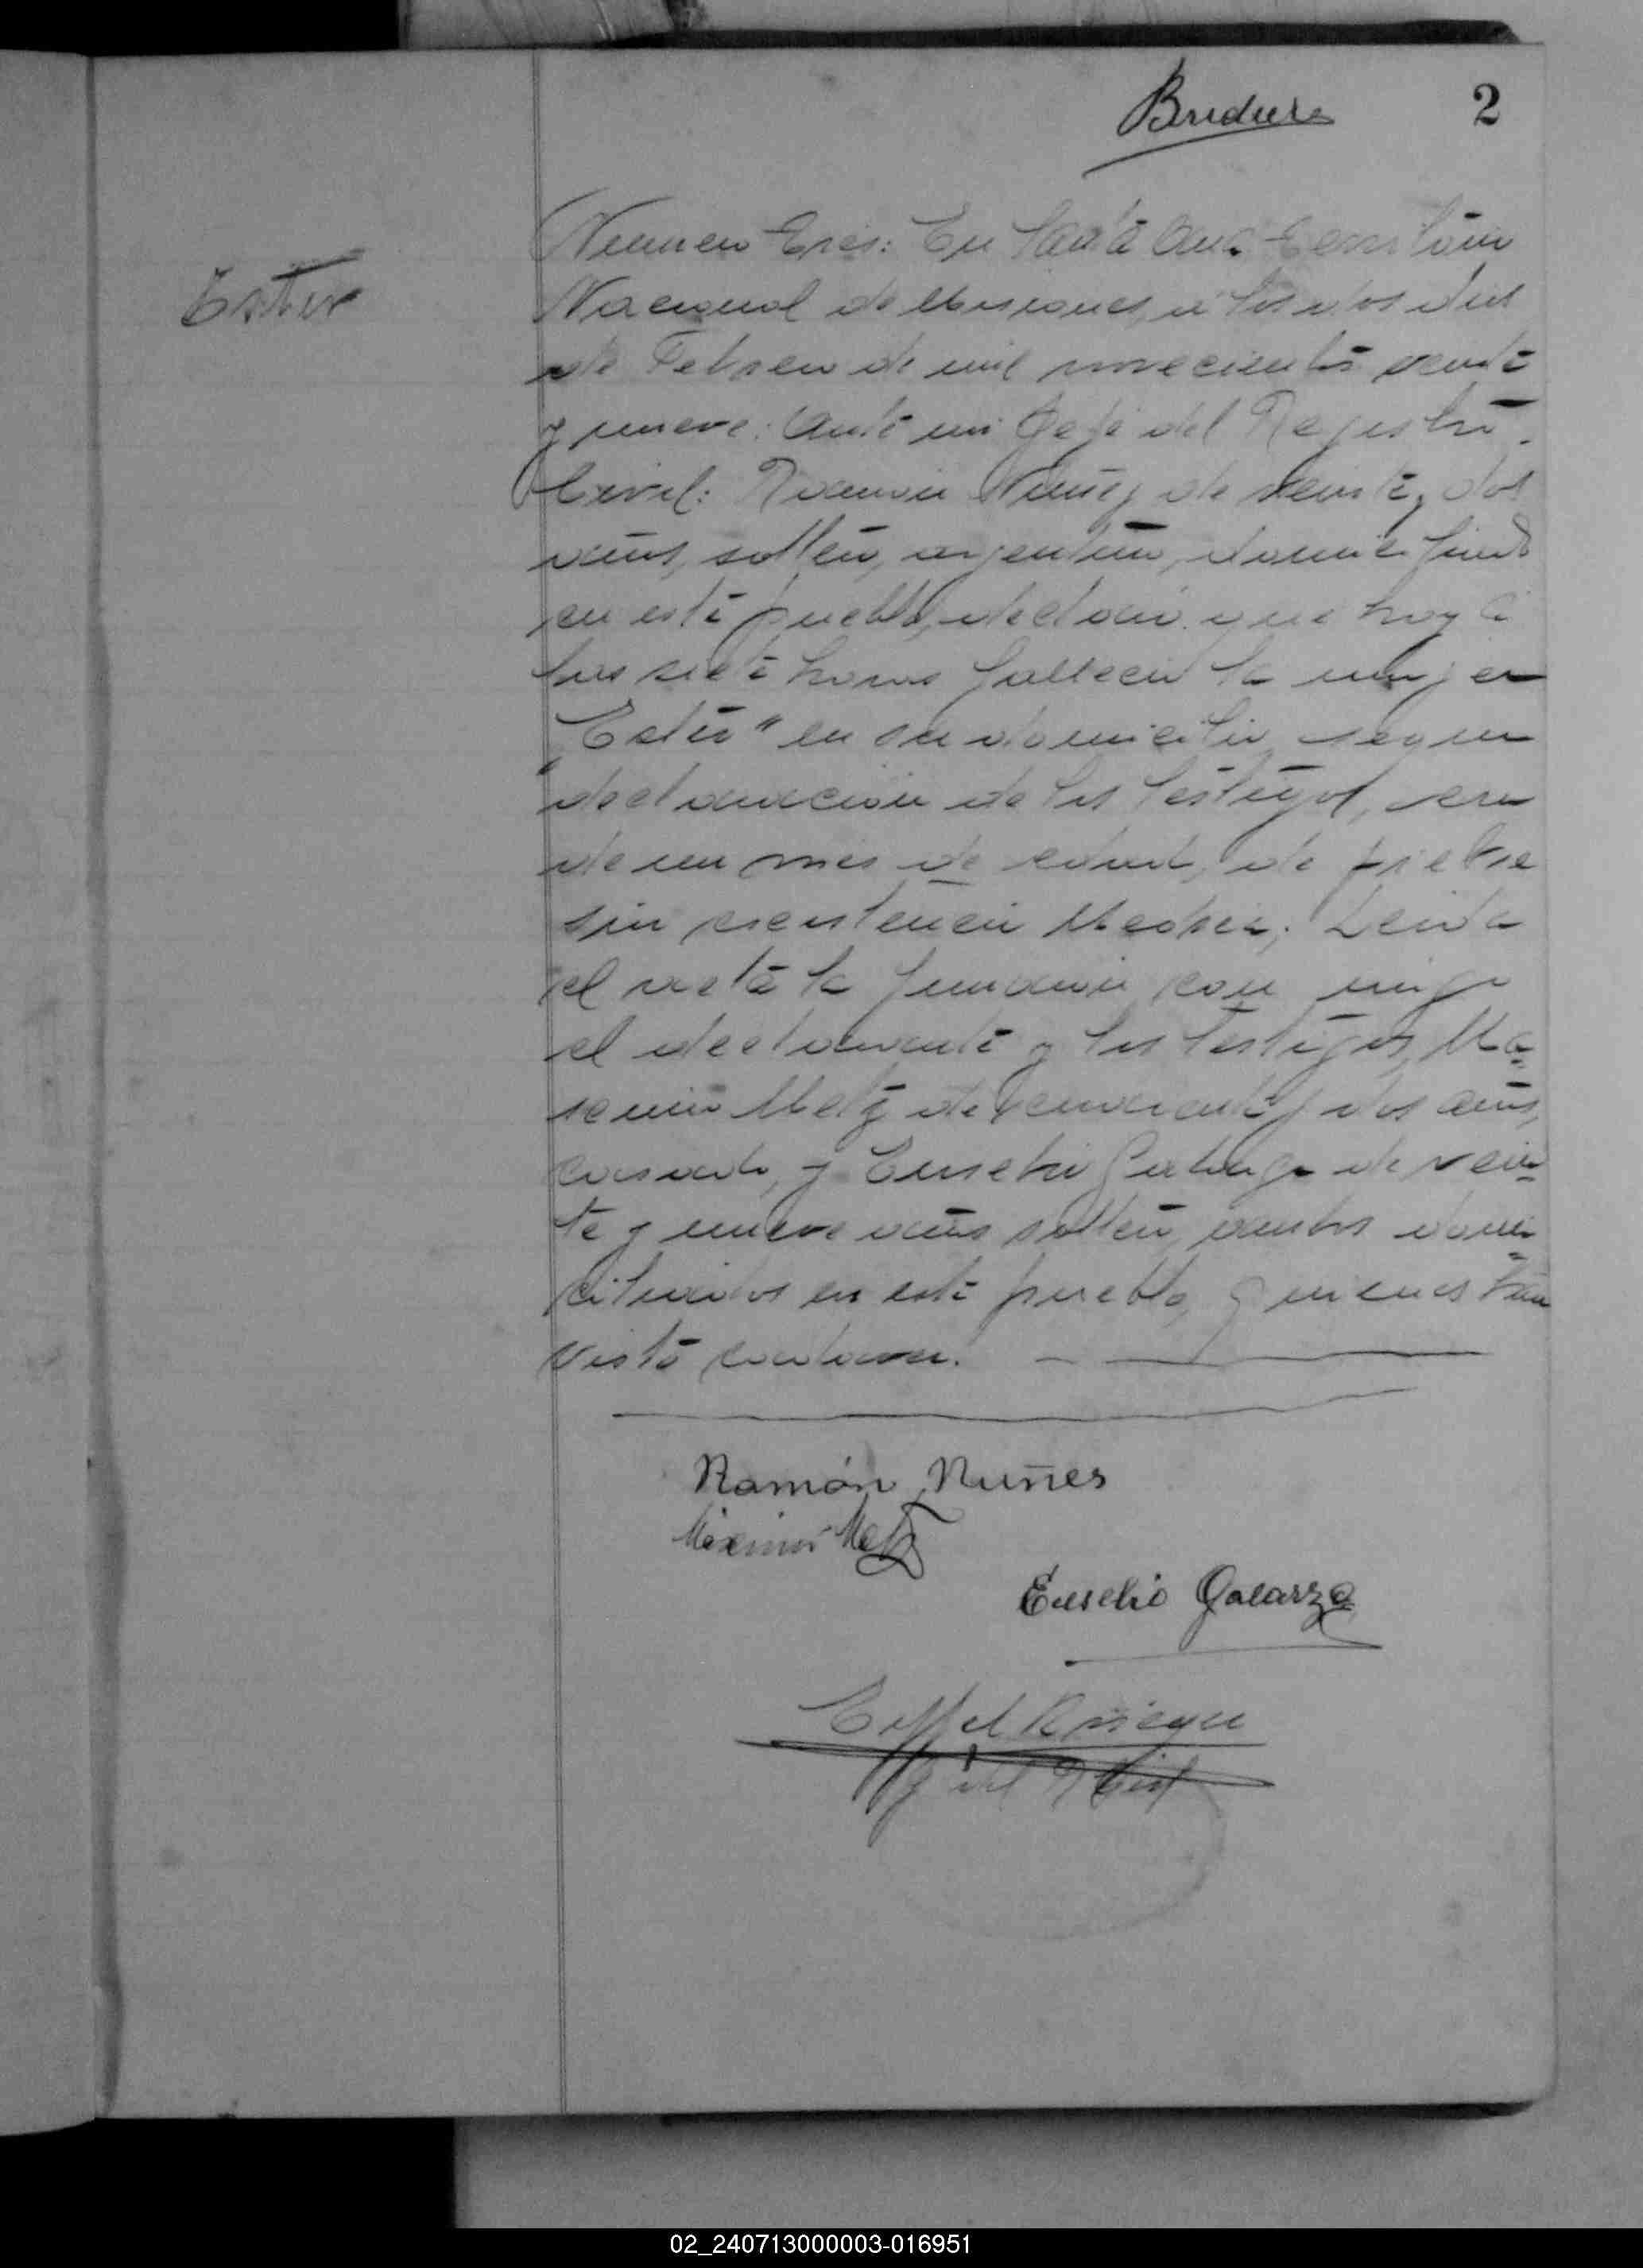 2
Ester
Numero Tres: En Santa Ana Territorio
Nacional de Misiones, a los dos dias
de Febrero de mil novecientos veinte
y nueve: Ante mi Gefe del Registro
Civil: Ramon Nuñez de veinte y dos
años, soltero, argentino, domiciliado
en este pueblo, declaró que hoy a
las siete horas fallecio la mujer
"Ester" en su domicilio segun
declaracion de los testigos, era
de un mes de edad, de fiebre
sin asistencia Medica; Leida
el acta la firmaron con migo
el declarante y los testigos, Ma
ximo Metz de cuarenta y dos años,
casado, y Eusebio Galarza de vein
te y nueve años soltero, ambos domi
ciliados en este pueblo, quienes han
visto cadaver.
Ramón Nuñes
Maximo Metz
Eusebio Galarza
G del R Civil
02_240713000003-016951